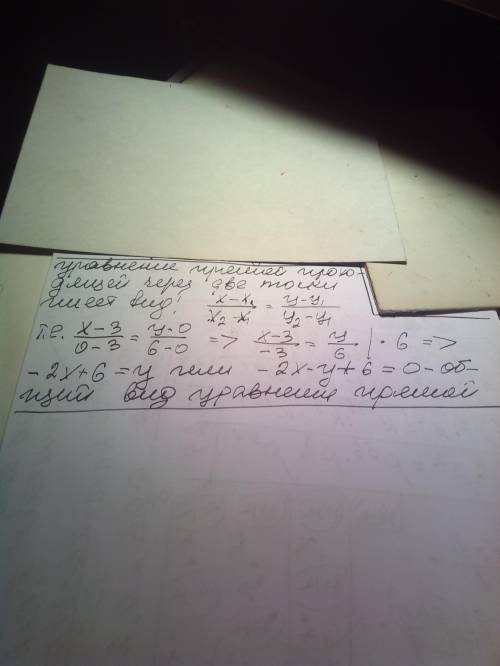 уравнение прямой прохо-
дящей через две точки
имеет вид: (x-x₁)/(x₂-x₁) = (y-y₁)/(y₂-y₁)
т.е. (x-3)/(0-3) = (y-0)/(6-0) => (x-3)/(-3) = y/6 | · 6 =>
-2x+6=y или -2x-y+6=0-об-
щий вид уравнения прямой